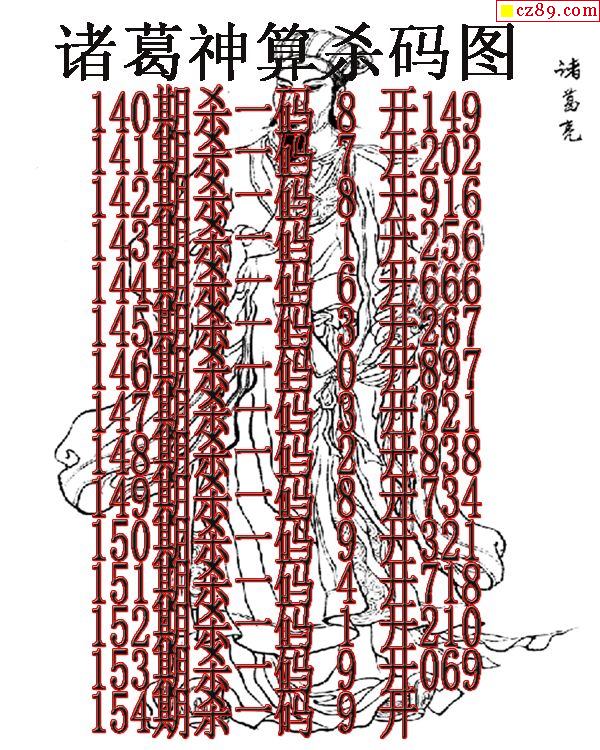 cz89.com
诸葛神算杀码图
诸葛亮
140期杀一码 8 开149
141期杀一码 7 开202
142期杀一码 8 开916
143期杀一码 1 开256
144期杀一码 6 开666
145期杀一码 3 开267
146期杀一码 0 开897
147期杀一码 3 开321
148期杀一码 2 开838
149期杀一码 8 开734
150期杀一码 9 开321
151期杀一码 4 开718
152期杀一码 1 开210
153期杀一码 9 开069
154期杀一码 9 开